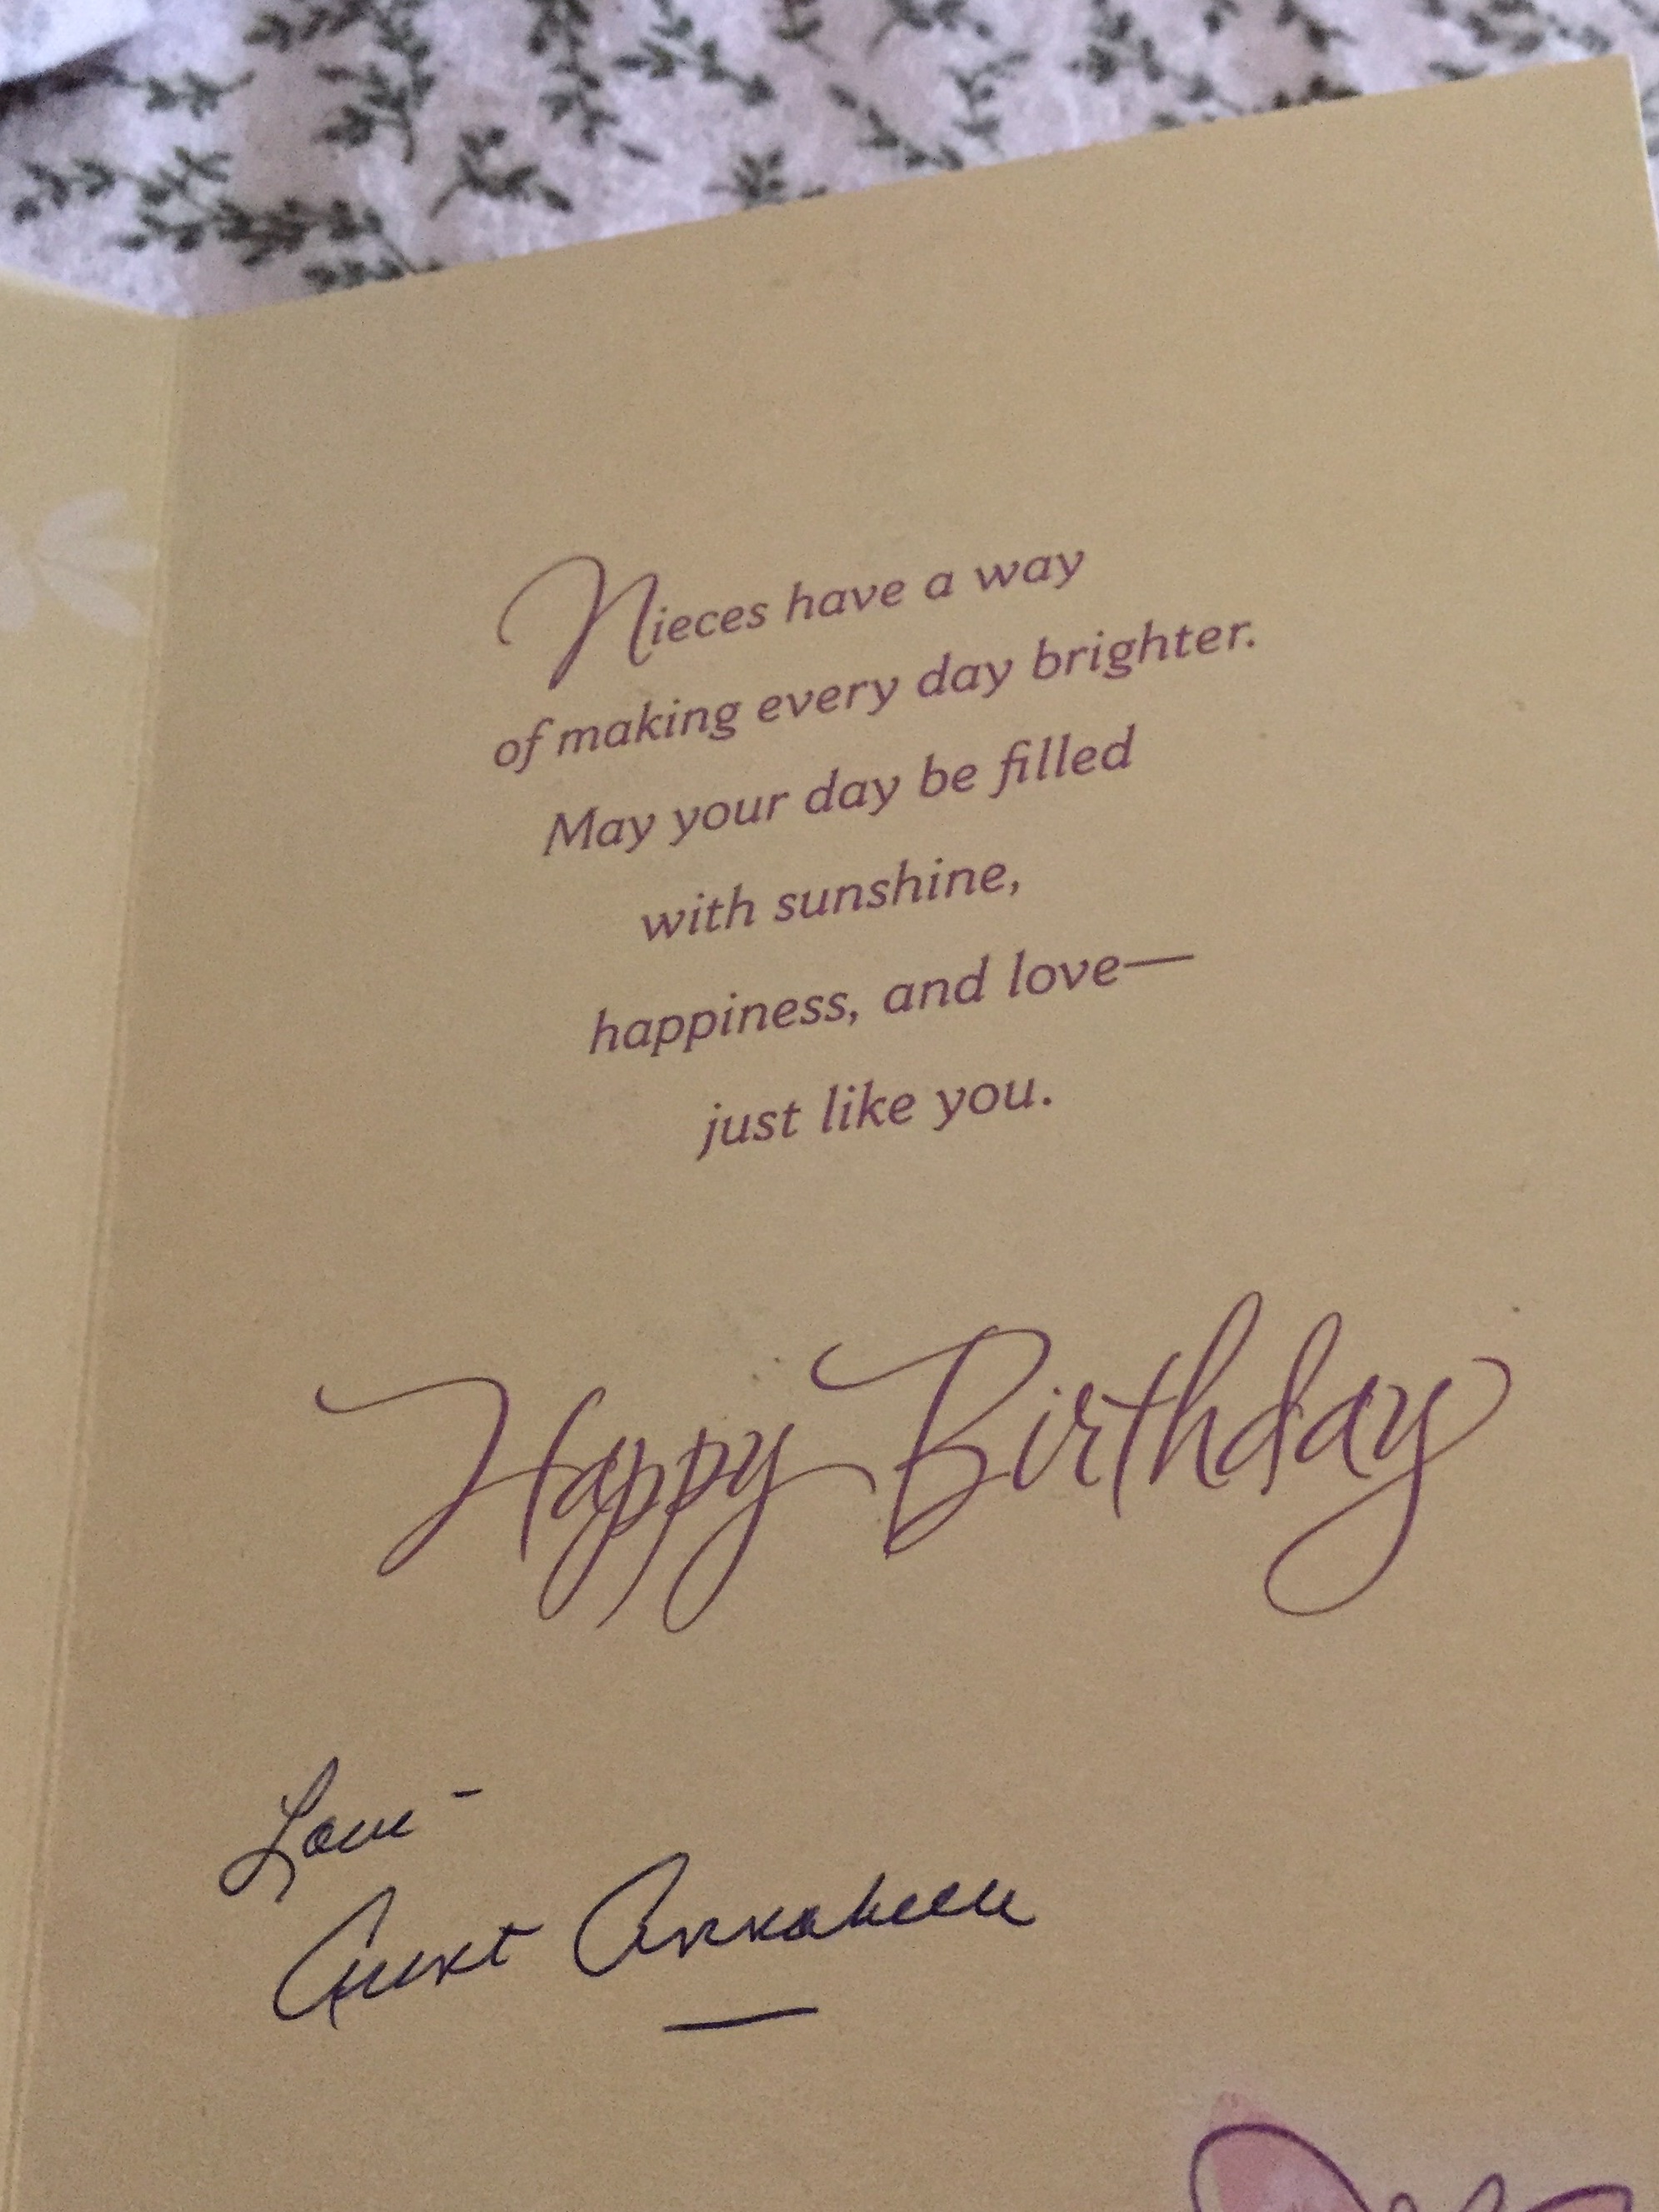 Nieces have a way
of making every day brighter.
May your day be filled
with sunshine,
happiness, and love—
just like you.
Happy Birthday
Love -
Aunt Annabelle